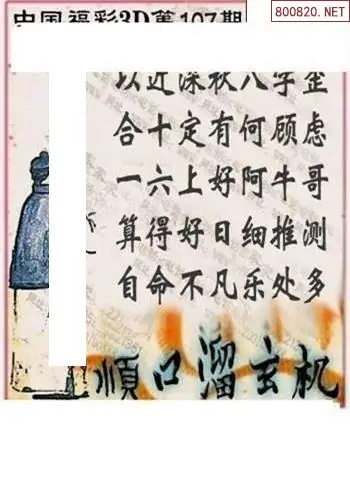 中国福彩3D第107期
800820.NET
以近深秋八字歪
合十定有何顾虑
一六上好阿牛哥
算得好日细推测
自命不凡乐处多
顺口溜玄机